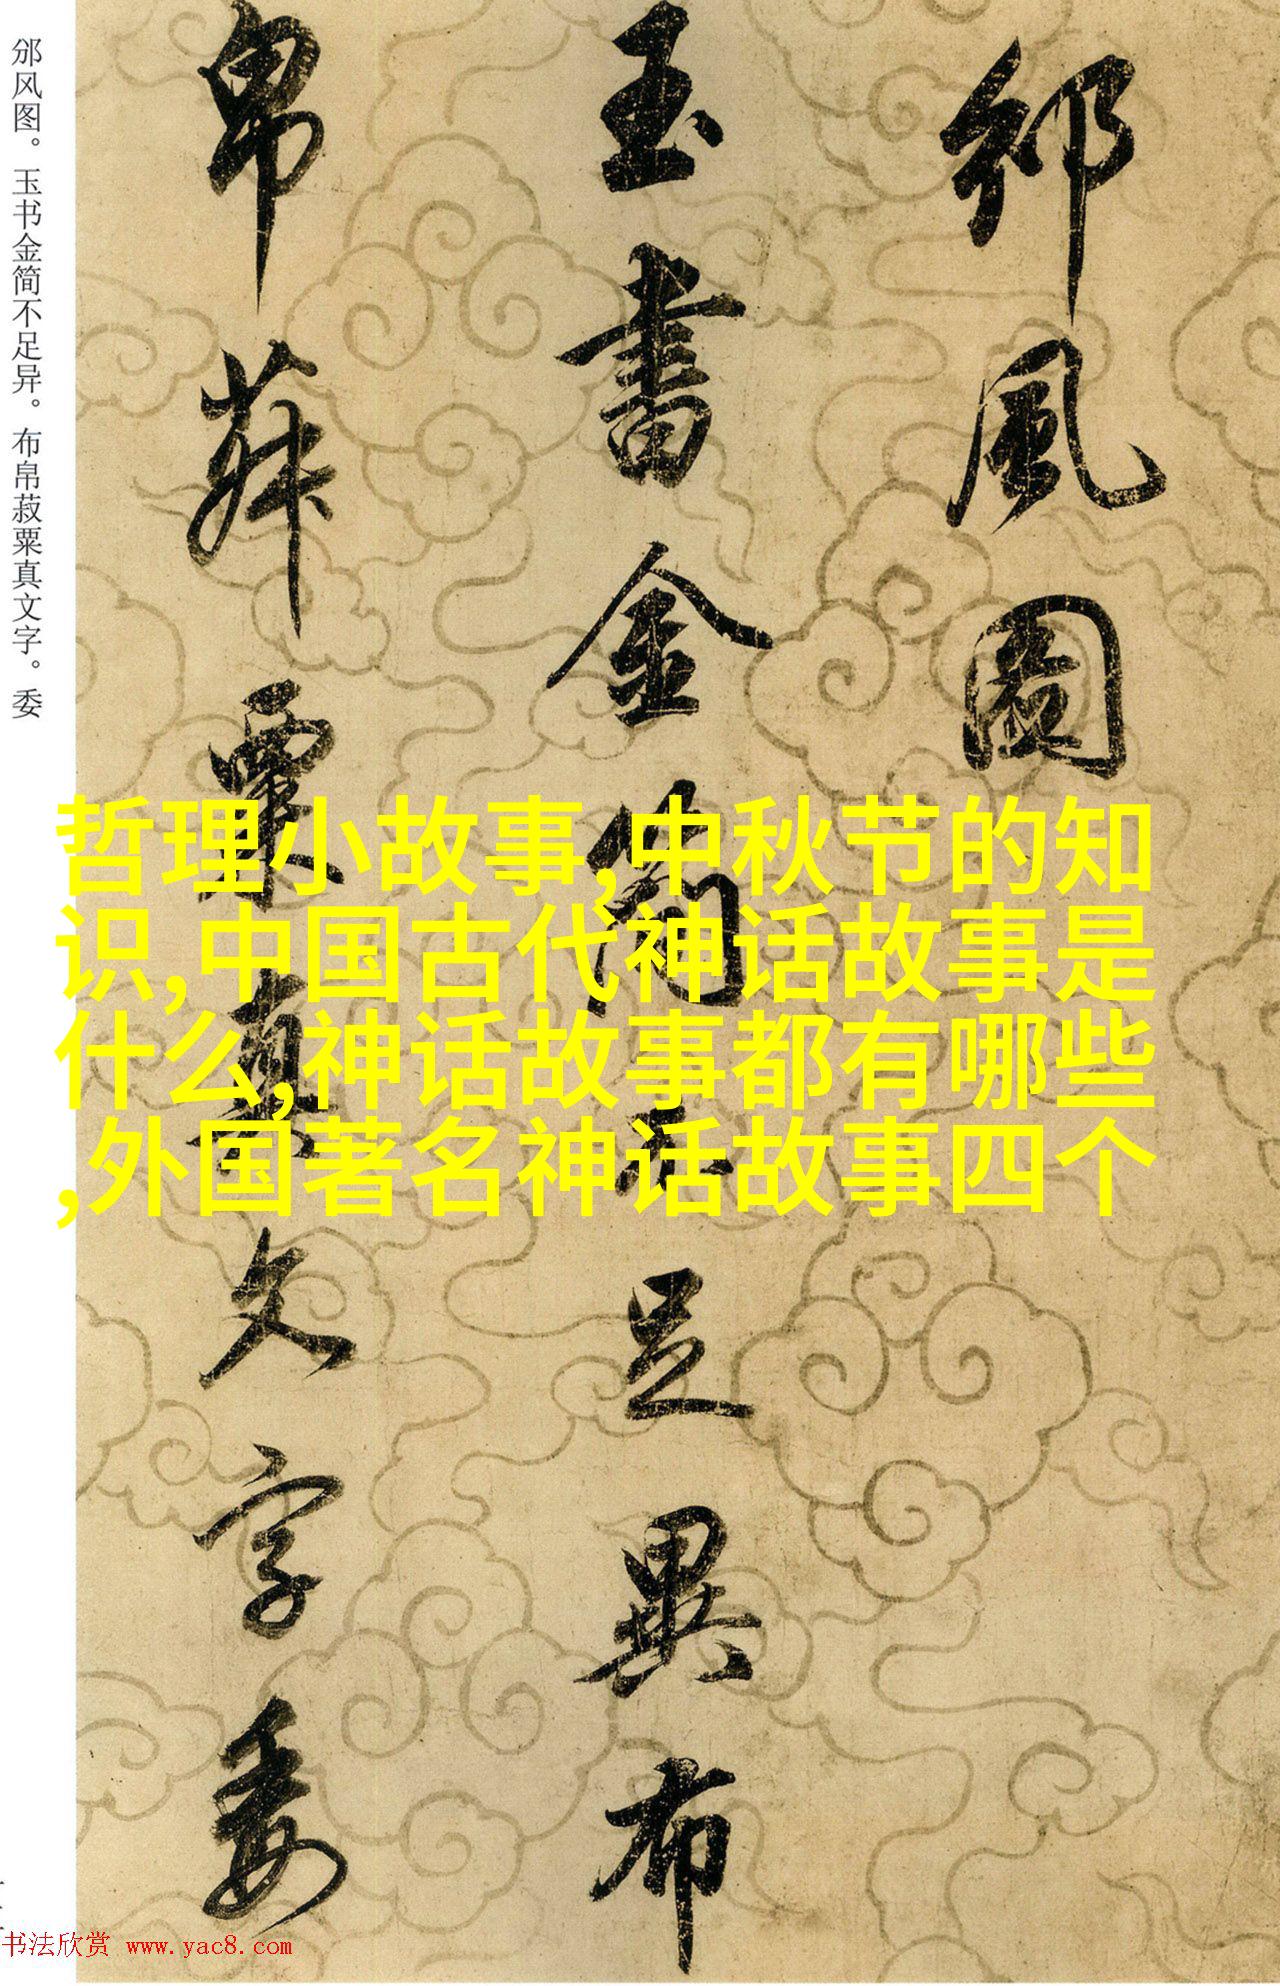 邠風圖
玉書金簡不足異布
帛菽粟真文字委
邠风图。玉书金简不足异。布帛菽粟真文字。委
哲理小故事,中秋节的知
识,中国古代神话故事是
什么,神话故事都有哪些
,外国著名神话故事四个
书法欣赏 www.yac8.com